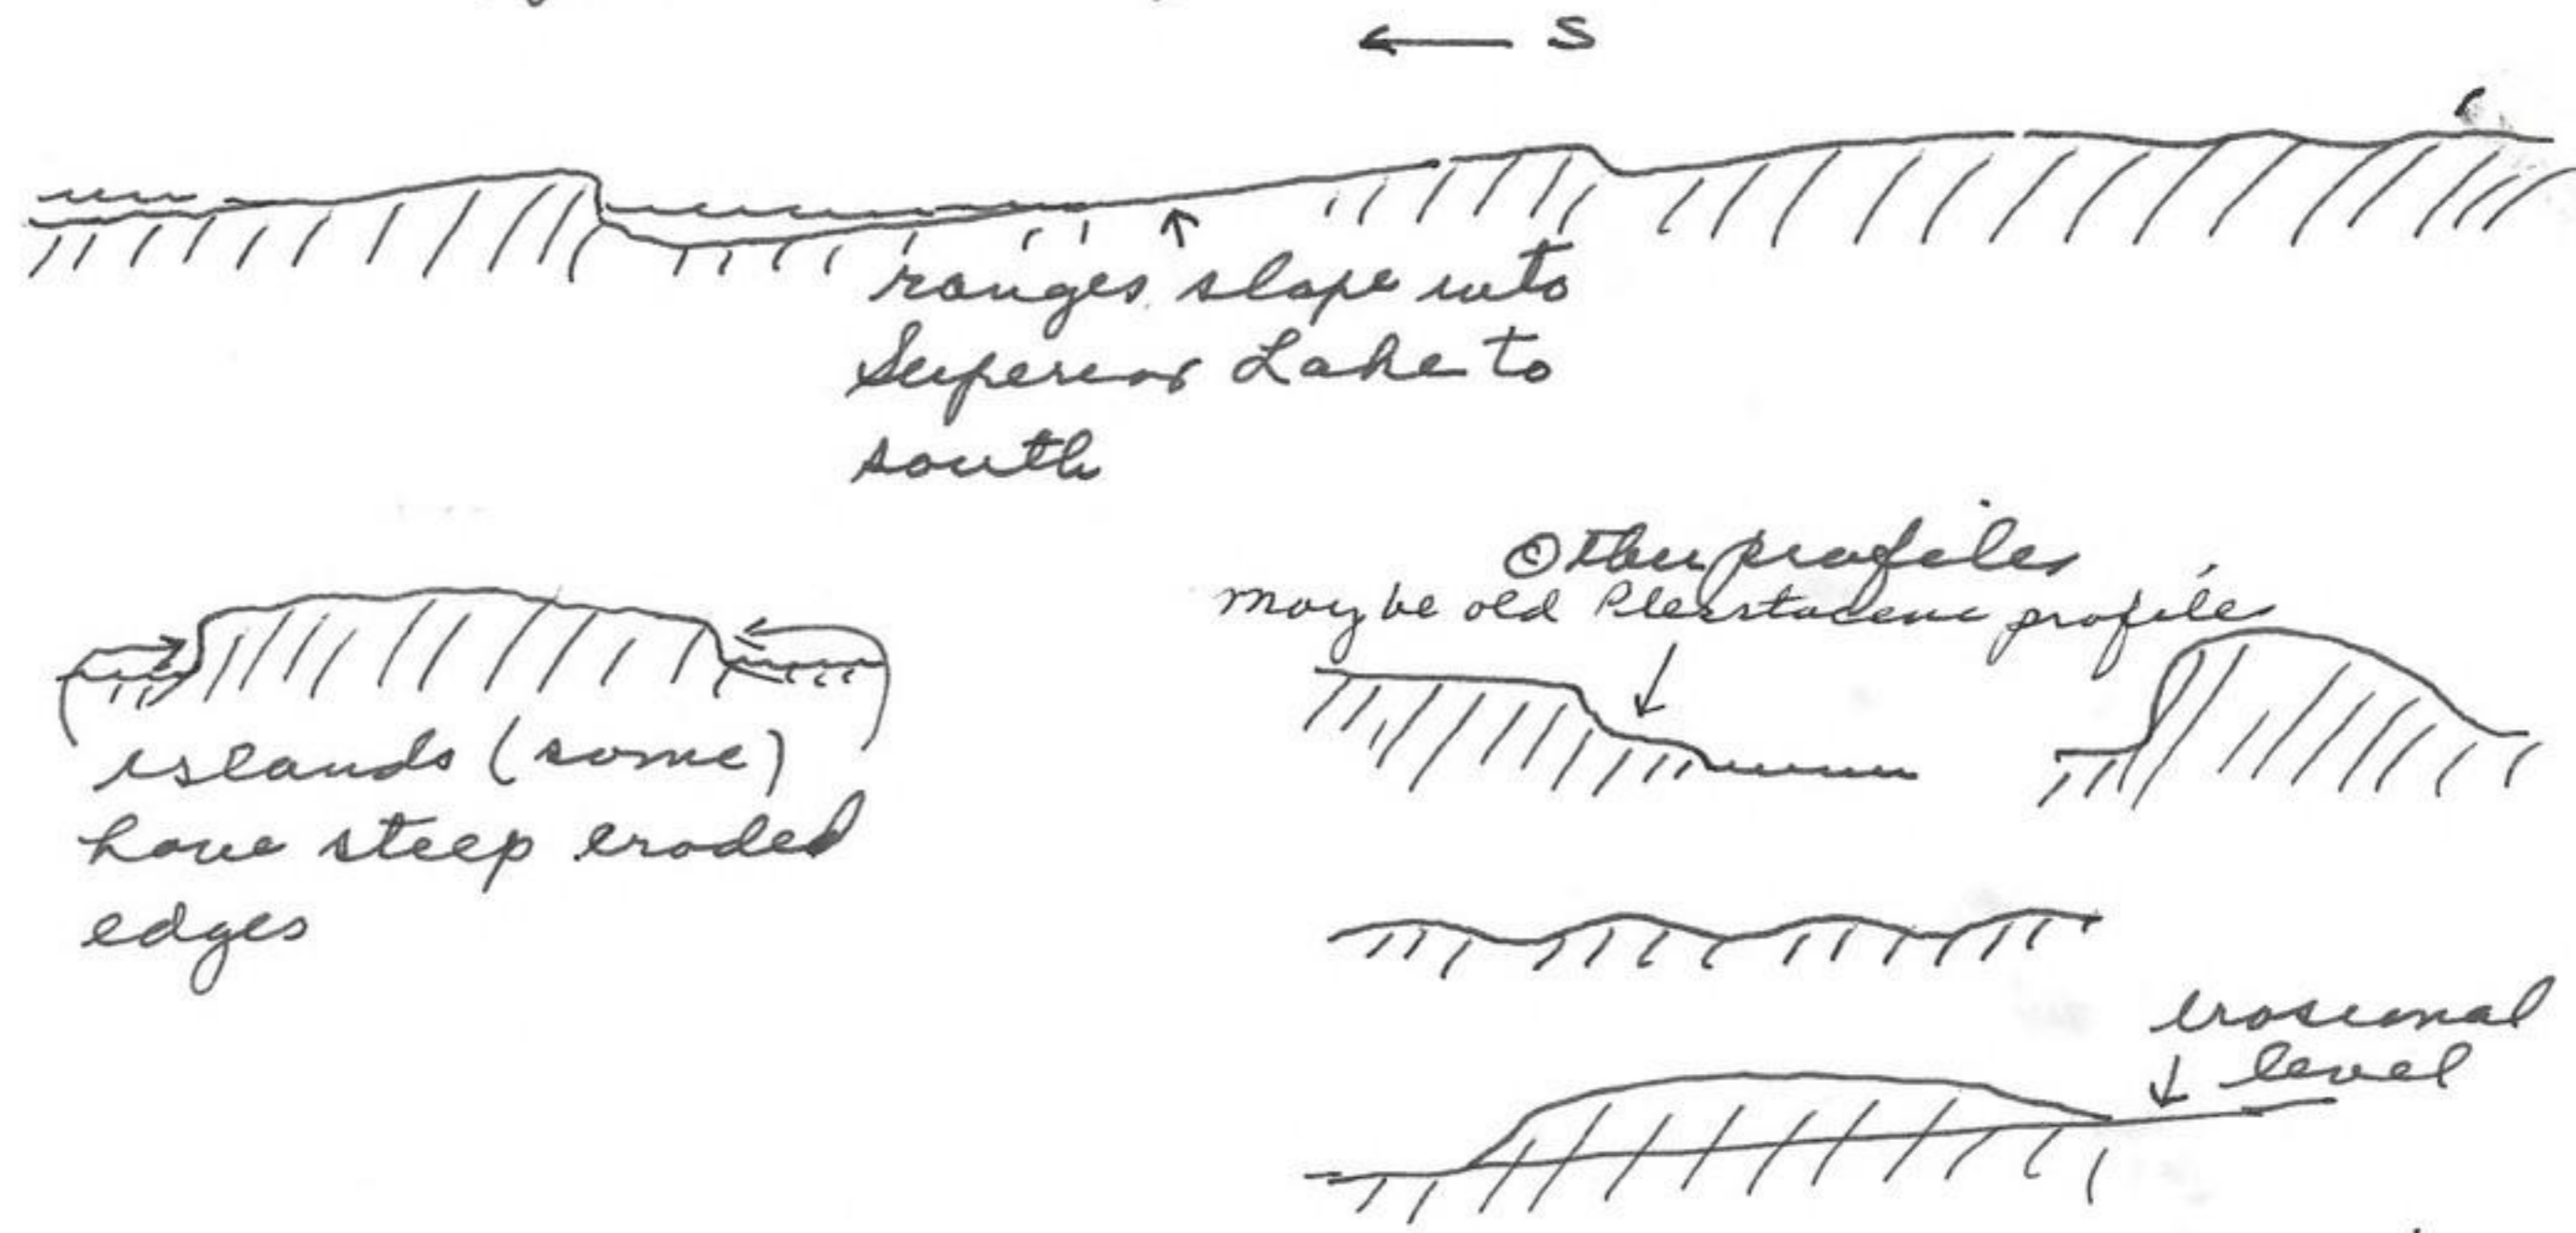 ← S
ranges slope into
Superior Lake to
south
Other profiles
may be old Pleistocene profile
islands (some)
have steep eroded
edges
erosional
level